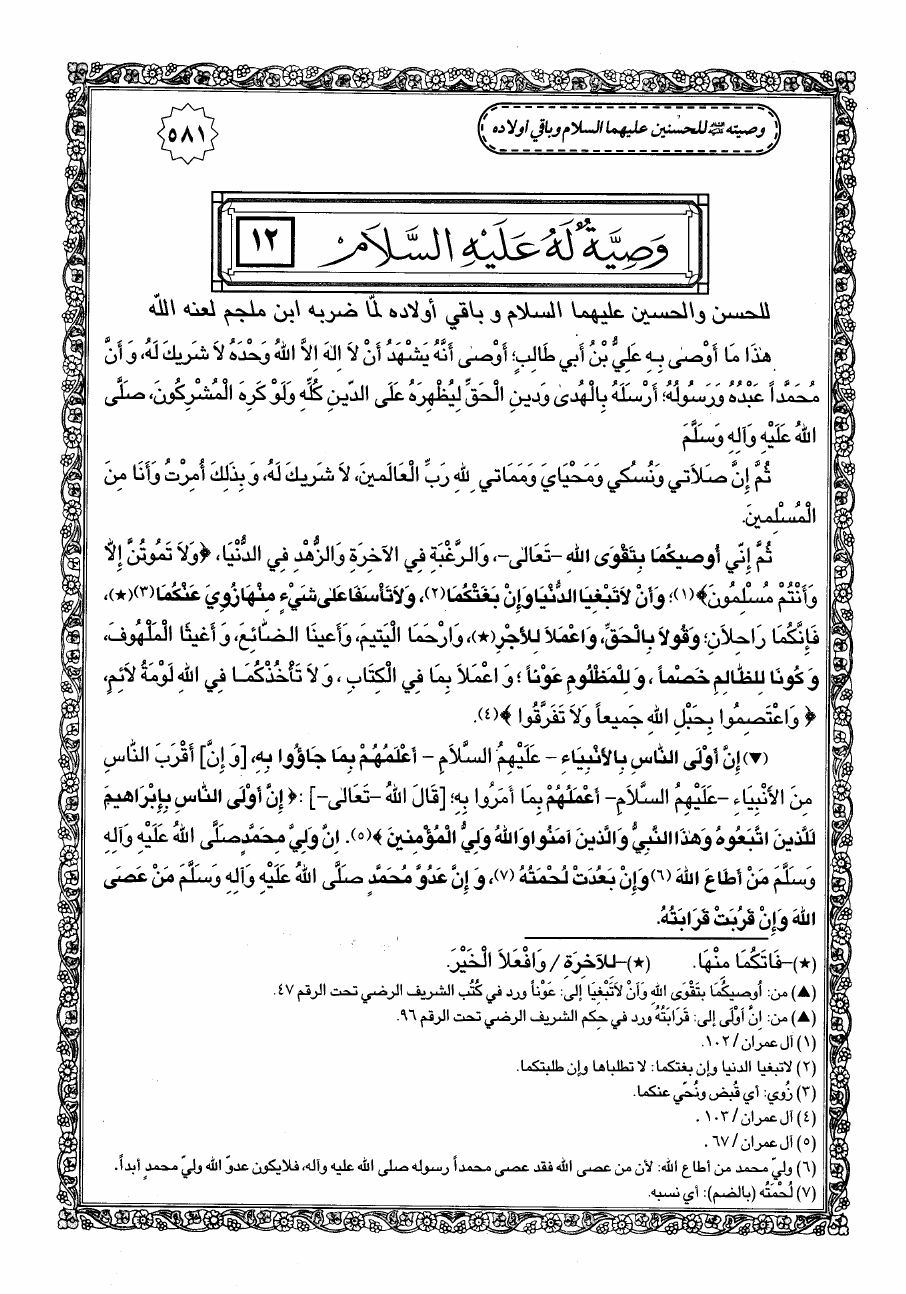 وصيته للحسنين عليهما السلام وباقي أولاده
٥٨١
وَصِيَّةٌ لَهُ عَلَيْهِ السَّلَامُ
١٢
للحسن والحسين عليهما السلام و باقي أولاده لمّا ضربه ابن ملجم لعنه اللّه
هٰذَا مَا أَوْصٰى بِهِ عَلِيُّ بْنُ أَبي طَالِبٍ؛ أَوْصٰى أَنَّهُ يَشْهَدُ أَنْ لاَ إِلٰهَ إِلاَّ اللهُ وَحْدَهُ لاَ شَريكَ لَهُ، وَ أَنَّ
مُحَمَّداً عَبْدُهُ وَرَسُولُهُ؛ أَرْسَلَهُ بِالْهُدىٰ وَدينِ الْحَقِّ لِيُظْهِرَهُ عَلَى الدّينِ كُلِّهِ وَلَوْ كَرِهَ الْمُشْرِكُونَ، صَلَّى
اللهُ عَلَيْهِ وَآلِهِ وَسَلَّمَ
ثُمَّ إِنَّ صَلاَتي وَنُسُكي وَمَحْيَايَ وَمَمَاتي لِلهِ رَبِّ الْعَالَمينَ، لاَ شَريكَ لَهُ، وَ بِذٰلِكَ أُمِرْتُ وَأَنَا مِنَ
الْمُسْلِمينَ.
ثُمَّ إِنّي أُوصيكُمَا بِتَقْوَى اللهِ –تَعَالىٰ–، وَالرَّغْبَةِ فِي الآخِرَةِ وَالزُّهْدِ فِي الدُّنْيَا، ﴿وَلاَ تَمُوتُنَّ إِلاَّ
وَأَنْتُمْ مُسْلِمُونَ﴾(١)؛ وَأَنْ لاَتَبْغِيَا الدُّنْيَا وَإِنْ بَغَتْكُمَا(٢)، وَلاَتَأْسَفَا عَلىٰ شَيْءٍ مِنْهَا زُوِيَ عَنْكُمَا(٣)(★)،
فَإِنَّكُمَا رَاحِلاَنِ؛ وَقُولاَ بِالْحَقِّ، وَاعْمَلاَ لِلأَجْرِ(★)، وَارْحَمَا الْيَتيمَ، وَأَعينَا الضَّائِعَ، وَ أَغيثَا الْمَلْهُوفَ،
وَ كُونَا لِلظَّالِمِ خَصْماً ، وَ لِلْمَظْلُومِ عَوْناً ؛ وَ اعْمَلاَ بِمَا فِي الْكِتَابِ ، وَ لاَ تَأْخُذْكُمَا فِي اللهِ لَوْمَةُ لاَئِمٍ،
﴿ وَ اعْتَصِمُوا بِحَبْلِ اللهِ جَميعاً وَلاَ تَفَرَّقُوا ﴾(٤).
(▼)إِنَّ أَوْلَى النَّاسِ بِالأَنْبِيَاءِ – عَلَيْهِمُ السَّلاَمُ – أَعْلَمُهُمْ بِمَا جَاؤُوا بِهِ، [وَ إِنَّ] أَقْرَبَ النَّاسِ
مِنَ الأَنْبِيَاءِ –عَلَيْهِمُ السَّلاَمُ– أَعْمَلُهُمْ بِمَا أَمَرُوا بِهِ؛ [قَالَ اللهُ –تَعَالىٰ–] :﴿ إِنَّ أَوْلَى النَّاسِ بِإِبْرَاهيمَ
لَلَّذينَ اتَّبَعُوهُ وَهٰذَا النَّبِيُّ وَالَّذينَ آمَنُوا وَاللهُ وَلِيُّ الْمُؤْمِنينَ ﴾(٥). إِنَّ وَلِيَّ مُحَمَّدٍ صَلَّى اللهُ عَلَيْهِ وَآلِهِ
وَسَلَّمَ مَنْ أَطَاعَ اللهَ (٦) وَإِنْ بَعُدَتْ لُحْمَتُهُ (٧)، وَ إِنَّ عَدُوَّ مُحَمَّدٍ صَلَّى اللهُ عَلَيْهِ وَآلِهِ وَسَلَّمَ مَنْ عَصَى
اللهَ وَإِنْ قَرُبَتْ قَرَابَتُهُ.
(★)–فَاتَكُمَا مِنْهَا. (★)–لِلآخِرَةِ / وَافْعَلاَ الْخَيْرَ.
(▲) من: أُوصيكُمَا بِتَقْوَى اللهِ وَأَنْ لاَتَبْغِيَا إلى: عَوْناً ورد في كُتُب الشريف الرضي تحت الرقم ٤٧.
(▲) من: إِنَّ أَوْلَى إلى: قَرَابَتُهُ ورد في حِكم الشريف الرضي تحت الرقم ٩٦.
(١) آل عمران / ١٠٢.
(٢) لاتبغيا الدنيا وإن بغتكما: لا تطلباها وإن طلبتكما.
(٣) زُوي: أي قُبض ونُحّي عنكما.
(٤) آل عمران / ١٠٣ .
(٥) آل عمران / ٦٧ .
(٦) وليّ محمد من أطاع الله: لأن من عصى الله فقد عصى محمداً رسوله صلى الله عليه وآله، فلايكون عدوّ الله وليّ محمدٍ أبداً.
(٧) لُحْمَتُه (بالضم): أي نسبه.